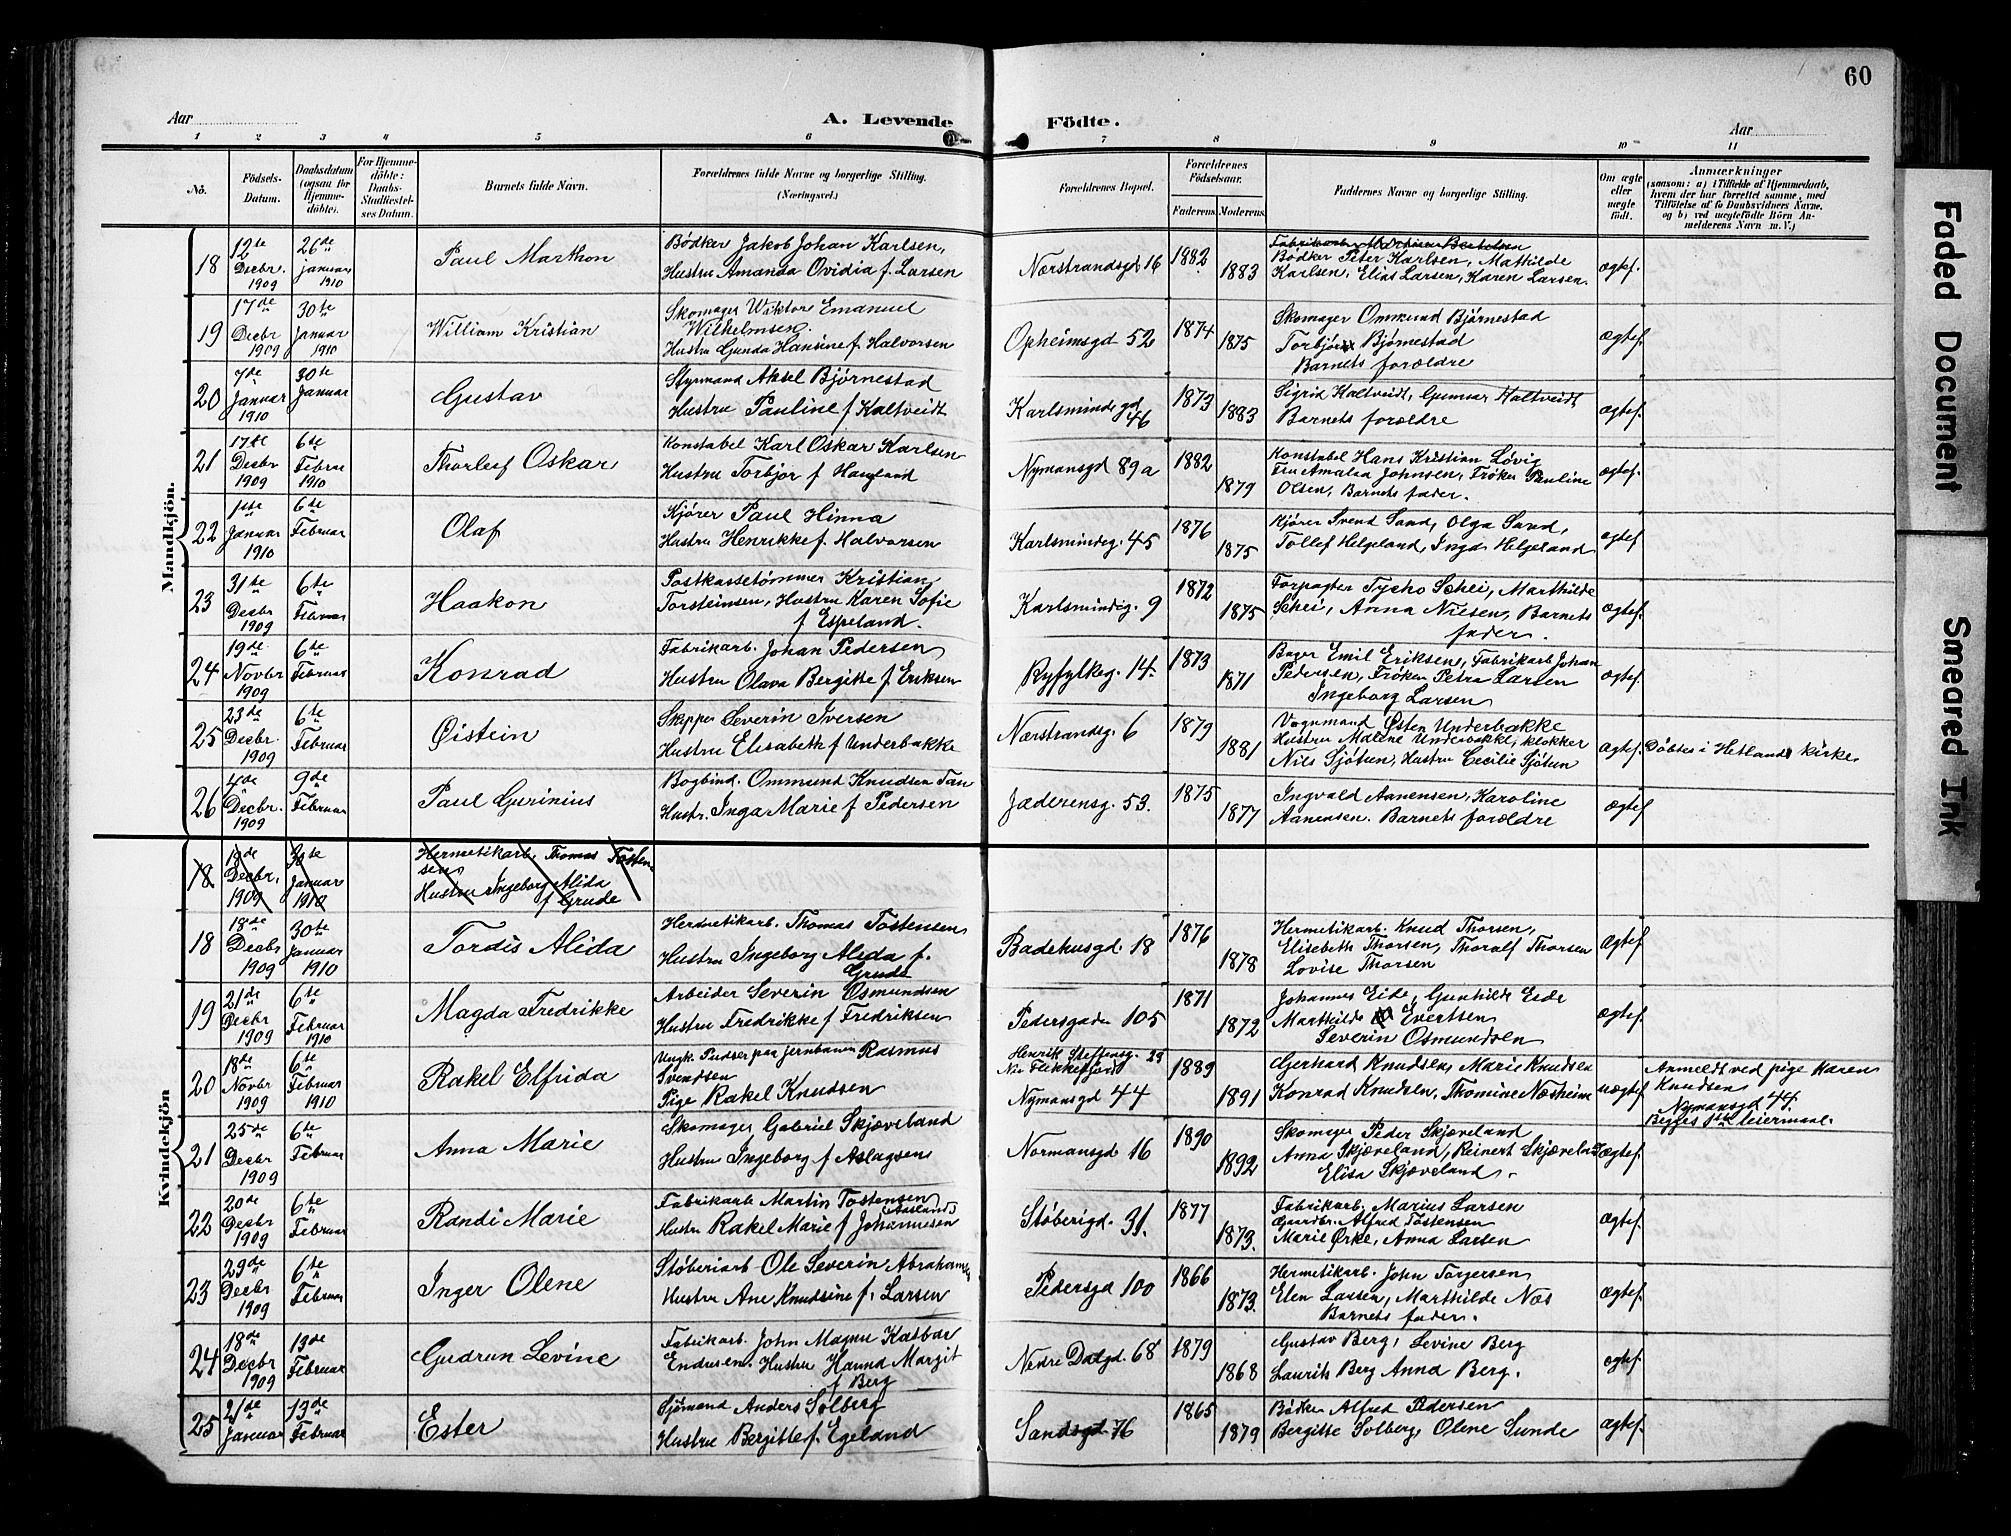 60
Aar
A. Levende Födte.
Aar
1 2 3 4 5 6 7 8 9 10 11
No.
Födsels-Datum.
Daabsdatum (ogsaa for Hjemmedöbte).
For Hjemmedöbte: Daabs-Stadfæstelses Datum.
Barnets fulde Navn.
Forældrenes fulde Navne og borgerlige Stilling. (Næringsvei.)
Forældrenes Bopæl.
Forældrenes Födselsaar.
Faderens. Moderens.
Faddernes Navne og borgerlige Stilling.
Om ægte eller uægte födt.
Anmærkninger
(saasom: a) i Tilfælde af Hjemmedaab, hvem der har forrettet samme, med Tilföielse af to Daabsvidners Navne, og b) ved uægtefödte Börn Anmelderens Navn m. V.)
Mandkjön.
18 12te Decbr. 1909 26de Januar 1910 Paul Marthon
Bødker Jakob Johan Karlsen,
Hustru Amanda Ovidia f. Larsen
Nærstrandsgd 16 1882 1883
Bødker Peter Karlsen, Mathilde
Karlsen, Elias Larsen, Karen Larsen. ægtef.
19 17de Decbr 1909 30te Januar 1910 William Kristian
Skomager Wiktor Emanuel
Wilhelmsen.
Hustru Gunda Hansine f. Halvorsen
Opheimsgd 52 1874 1875
Skomager Ommund Bjørnestad
Bjørnestad
Barnets forældre ægtef.
20 7de Januar 1910 30te Januar Gustav
Styrmand Aksel Bjørnestad
Hustru Pauline f Kaltveidt
Karlsminde gd 46 1873 1883
Sigrid Kaltveidt, Gunnar Kaltveidt
Barnets forældre ægtef.
21 17de Decbr 1909 6te Februar 1910 Thorleif Oskar
Konstabel Karl Oskar Karlsen
Hustru Torbjør f Haugland
Nymansgd 89a 1882 1879
Konstabel Hans Kristian Løvig
Fru Amalia Johnsen, Frøken Pauline
Olsen, Barnets fader. ægtef.
22 1ste Januar 1910 6te Februar Olaf
Kjører Paul Hinna
Hustru Henrikke f. Halvorsen
Karlsmindeg. 45 1876 1875
Kjører Svend Sand, Olga Sand,
Tollef Helgeland, Inga Helgeland ægtef
23 31te Decbr 1909 6te Haakon
Postkassetømmer Kristian
Torsteinsen, Hustru Karen Sofie
f Espeland.
Karlsmindig. 9 1872 1875
Forpagter Tycho Schei, Marthilde
Schei, Anna Nielsen, Barnets
fader. ægtef.
24 19de Novbr 1909 6te Februar Konrad
Fabrikarb. Johan Pedersen
Hustru Olava Bergitte f Eriksen
Ryfylkeg. 14. 1873 1871
Bager Emil Eriksen, Fabrikarb Johan
Pedersen, Frøken Petra Larsen
Ingeborg Larsen ægtef.
25 23de Decbr. 1909 6te Februar Øistein
Skipper Severin Iversen
Hustru Elisabeth f Underbakke
Nærstrandsg. 6 1879 1881
Vognmand Østen Underbakke
Hustru Malene Underbakke, klokker
Nils Sjøtun, Hustru Cecilie Sjøtun ægtef. Døbtes i Hetlands kirke.
26 4de Decbr. 1909 9de Februar Paul Gurinius
Bogbind. Ommund Knudsen Tau
Hustr. Inga Marie f Pedersen
Jæderensg. 53. 1875 1877
Ingvald Aanensen, Karoline
Aanensen. Barnets forældre ægtef
Kvindekjön
18 Decbr. 1909 30te Januar 1910 Hermetikarb. Thomas Tostensen
Hustru Ingeborg Alida
f Grude
18 18de Decbr 1909 30te Januar 1910 Tordis Alida
Hermetikarb. Thomas Tostensen
Hustru Ingeborg Alida f.
Grude
Badehusgd. 18 1876 1878
Hermetikarb. Knud Thorsen,
Elisebeth Thorsen, Thoralf Thorsen
Lovise Thorsen ægtef
19 21de Decbr 1909 6te Februar 1910 Magda Fredrikke
Arbeider Severin Osmundsen
Hustru Fredrikke f Fredriksen
Pedersgaden 105 1871 1872
Johannes Eide, Gunhilde Eide
Marthilde Evertsen
Severin Osmundsen ægtef.
20 18de Novbr 1909 6te Februar 1910 Rakel Elfrida
Ungk. Pudser paa jernbanen Rasmus
Svendsen
Pige Rakel Knudsen
Henrik Steffensg. 29
Nymansgd 44 1889 1891
Gerhard Knudsen, Marie Knudsen
Konrad Knudsen, Thomine Næsheim uægtef
Anmeldt ved pige Karen
Knudsen
Nymansgd 44.
Begges 1ste leiermaal.
21 25de Decbr 1909 6te Februar Anna Marie
Skomager Gabriel Skjæveland
Hustru Ingeborg f Aslagsen
Normansgd 16 1890 1892
Skomager Peder Skjæveland
Anna Skjæveland, Reinert Skjæveland
Elisa Skjæveland. ægtef.
22 20de Decbr 1909 6te Februar Randi Marie
Fabrikarb Martin Tostensen
(Aasland)
Hustr Rakel Marie f Johannesen
Støberigd. 31. 1877 1873.
Fabrikarb. Marius Larsen
Gaardbr. Alfred Tostensen
Marie Ørke, Anna Larsen ægtef.
23 29de Decbr 1909 6te Februar Inger Olene
Støberiarb Ole Severin Abrahamsen
Hustru Ane Knudsine f. Larsen
Pedersgd 100 1866 1873.
Hermetikarb. John Torgersen
Elen Larsen, Marthilde Næs
Barnets fader. ægtef.
24 18de Decbr 1909 13de Februar Gudrun Levine
Fabrikarb. John Magnus Kasbar
Endresen. Hustru Hanna Margit
f Berg
Nedre Dalgd. 68 1879 1868
Gustav Berg, Levine Berg
Laurits Berg Anna Berg. ægtef.
25 21de Januar 13de Februar Ester
Sjømand Anders Solberg
Hustru Bergitte f. Egeland
Sandsgd 76 1865 1879
Bødker Alfred Pedersen
Bergitte Solberg, Olene Sunde ægtef.
Faded Document
Smeared Ink